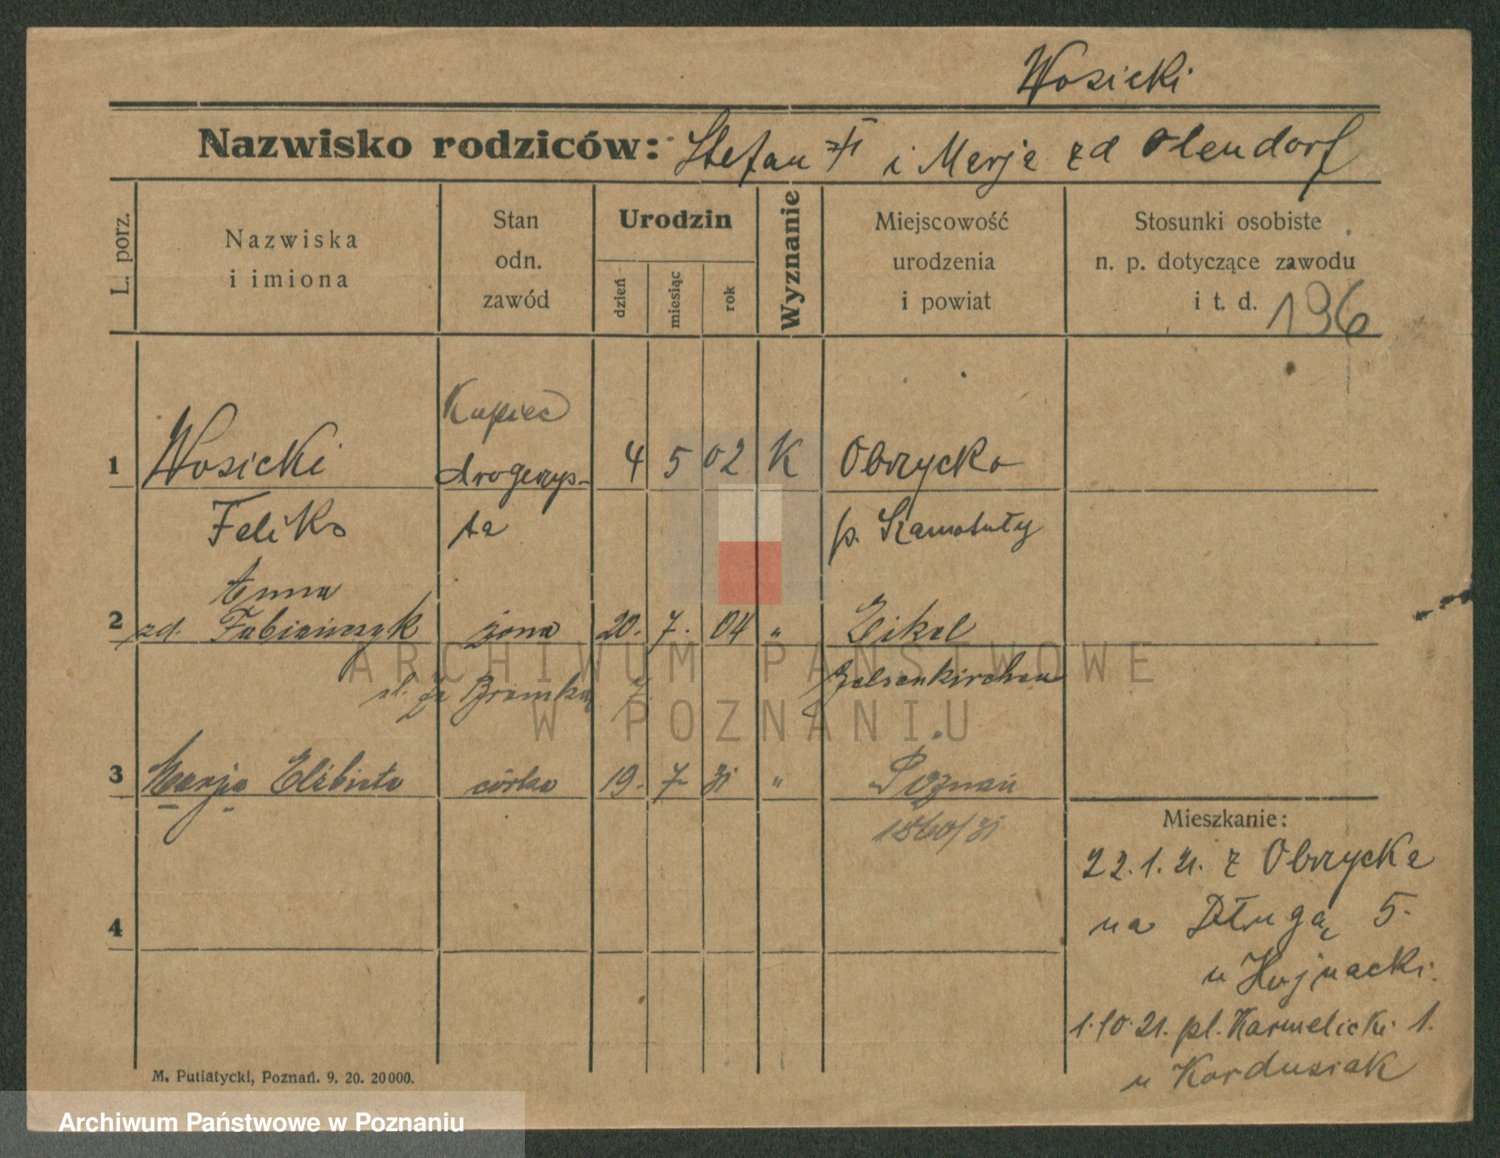 Wosicki
Nazwisko rodziców: Stefan i Marja zd Olendorf
L. porz.
Nazwiska
i imiona
Stan
odn.
zawód
Urodzin
dzień
miesiąc
rok
Wyznanie
Miejscowość
urodzenia
i powiat
Stosunki osobiste
n. p. dotyczące zawodu
i t. d.
196
Kupiec
1 Wosicki drogerzys- 4 5 02 K Obrzycko
Feliks ta p. Szamotuły
Anna
2 zd. Fabiańczyk żona 20. 7. 04 " Eikel
Gelsenkirchen
3 Marja Elżbieta córka 19. 7. 31 " Poznań
1860/31
4
Mieszkanie:
22.1.21. z Obrzycka
na Długą 5.
u Wojnacki.
1.10.21. pl. Karmelicki 1.
u Kordusiak
M. Putiatycki, Poznań. 9. 20. 20000.
ARCHIWUM PAŃSTWOWE
W POZNANIU
Archiwum Państwowe w Poznaniu